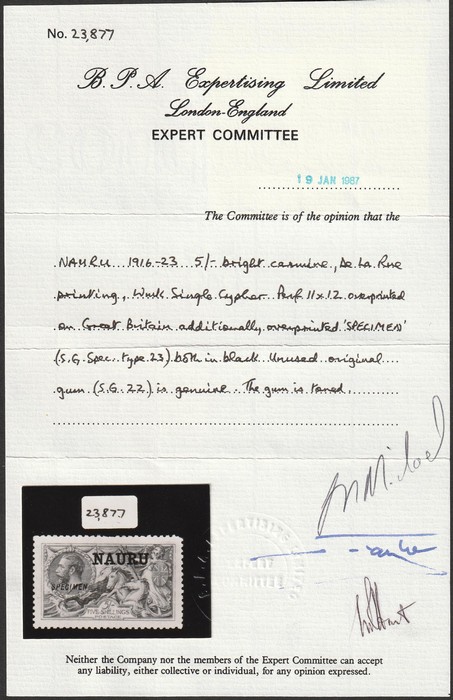 No. 23,877
B.P.A. Expertising Limited
London-England
EXPERT COMMITTEE
19 JAN 1987
The Committee is of the opinion that the
NAURU 1916-23 5/- bright carmine, De La Rue
printing, Wmk Single Cypher Perf 11x12 overprinted
on Great Britain additionally overprinted 'SPECIMEN'
(S.G. Spec. type 23) both in black. Unused original
gum (S.G. 22) is genuine. The gum is toned.
23,877
NAURU
SPECIMEN
FIVE SHILLINGS
POSTAGE
COMMITTEE
Neither the Company nor the members of the Expert Committee can accept
any liability, either collective or individual, for any opinion expressed.